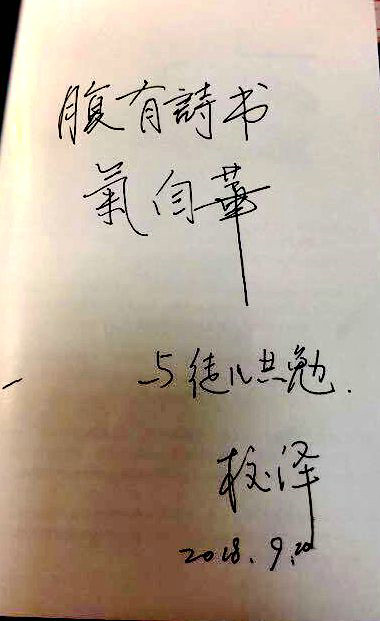 腹有詩书
氣自華
与徒儿共勉.
泽
2018.9.20